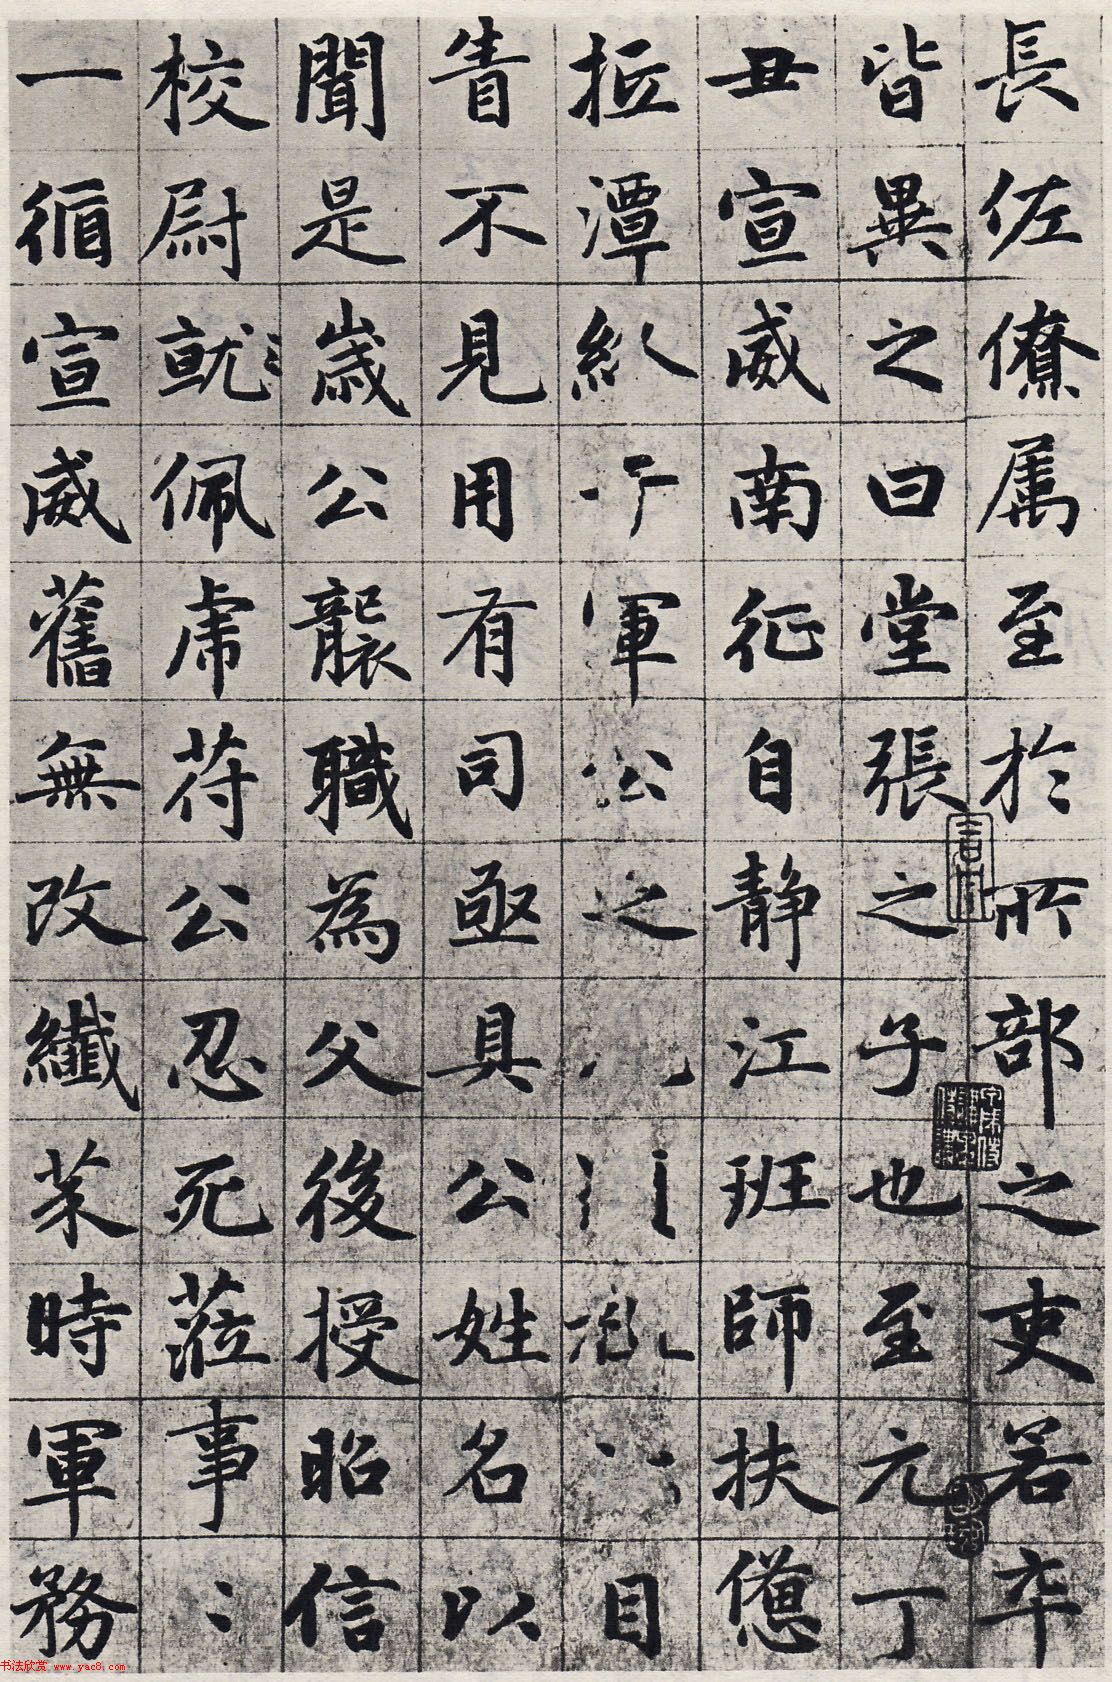 長佐僚属至於所部之吏若卒
皆異之曰堂張之子也至元丁
丑宣威南征自静江班師扶僽
拉潭公之目
眚不見用有司亟具公姓名以
聞是歲公襲職為父後授昭信
校尉就佩虎符公忍死莅事
一循宣威舊無改纖芥時軍務
书法欣赏 www.yac8.com